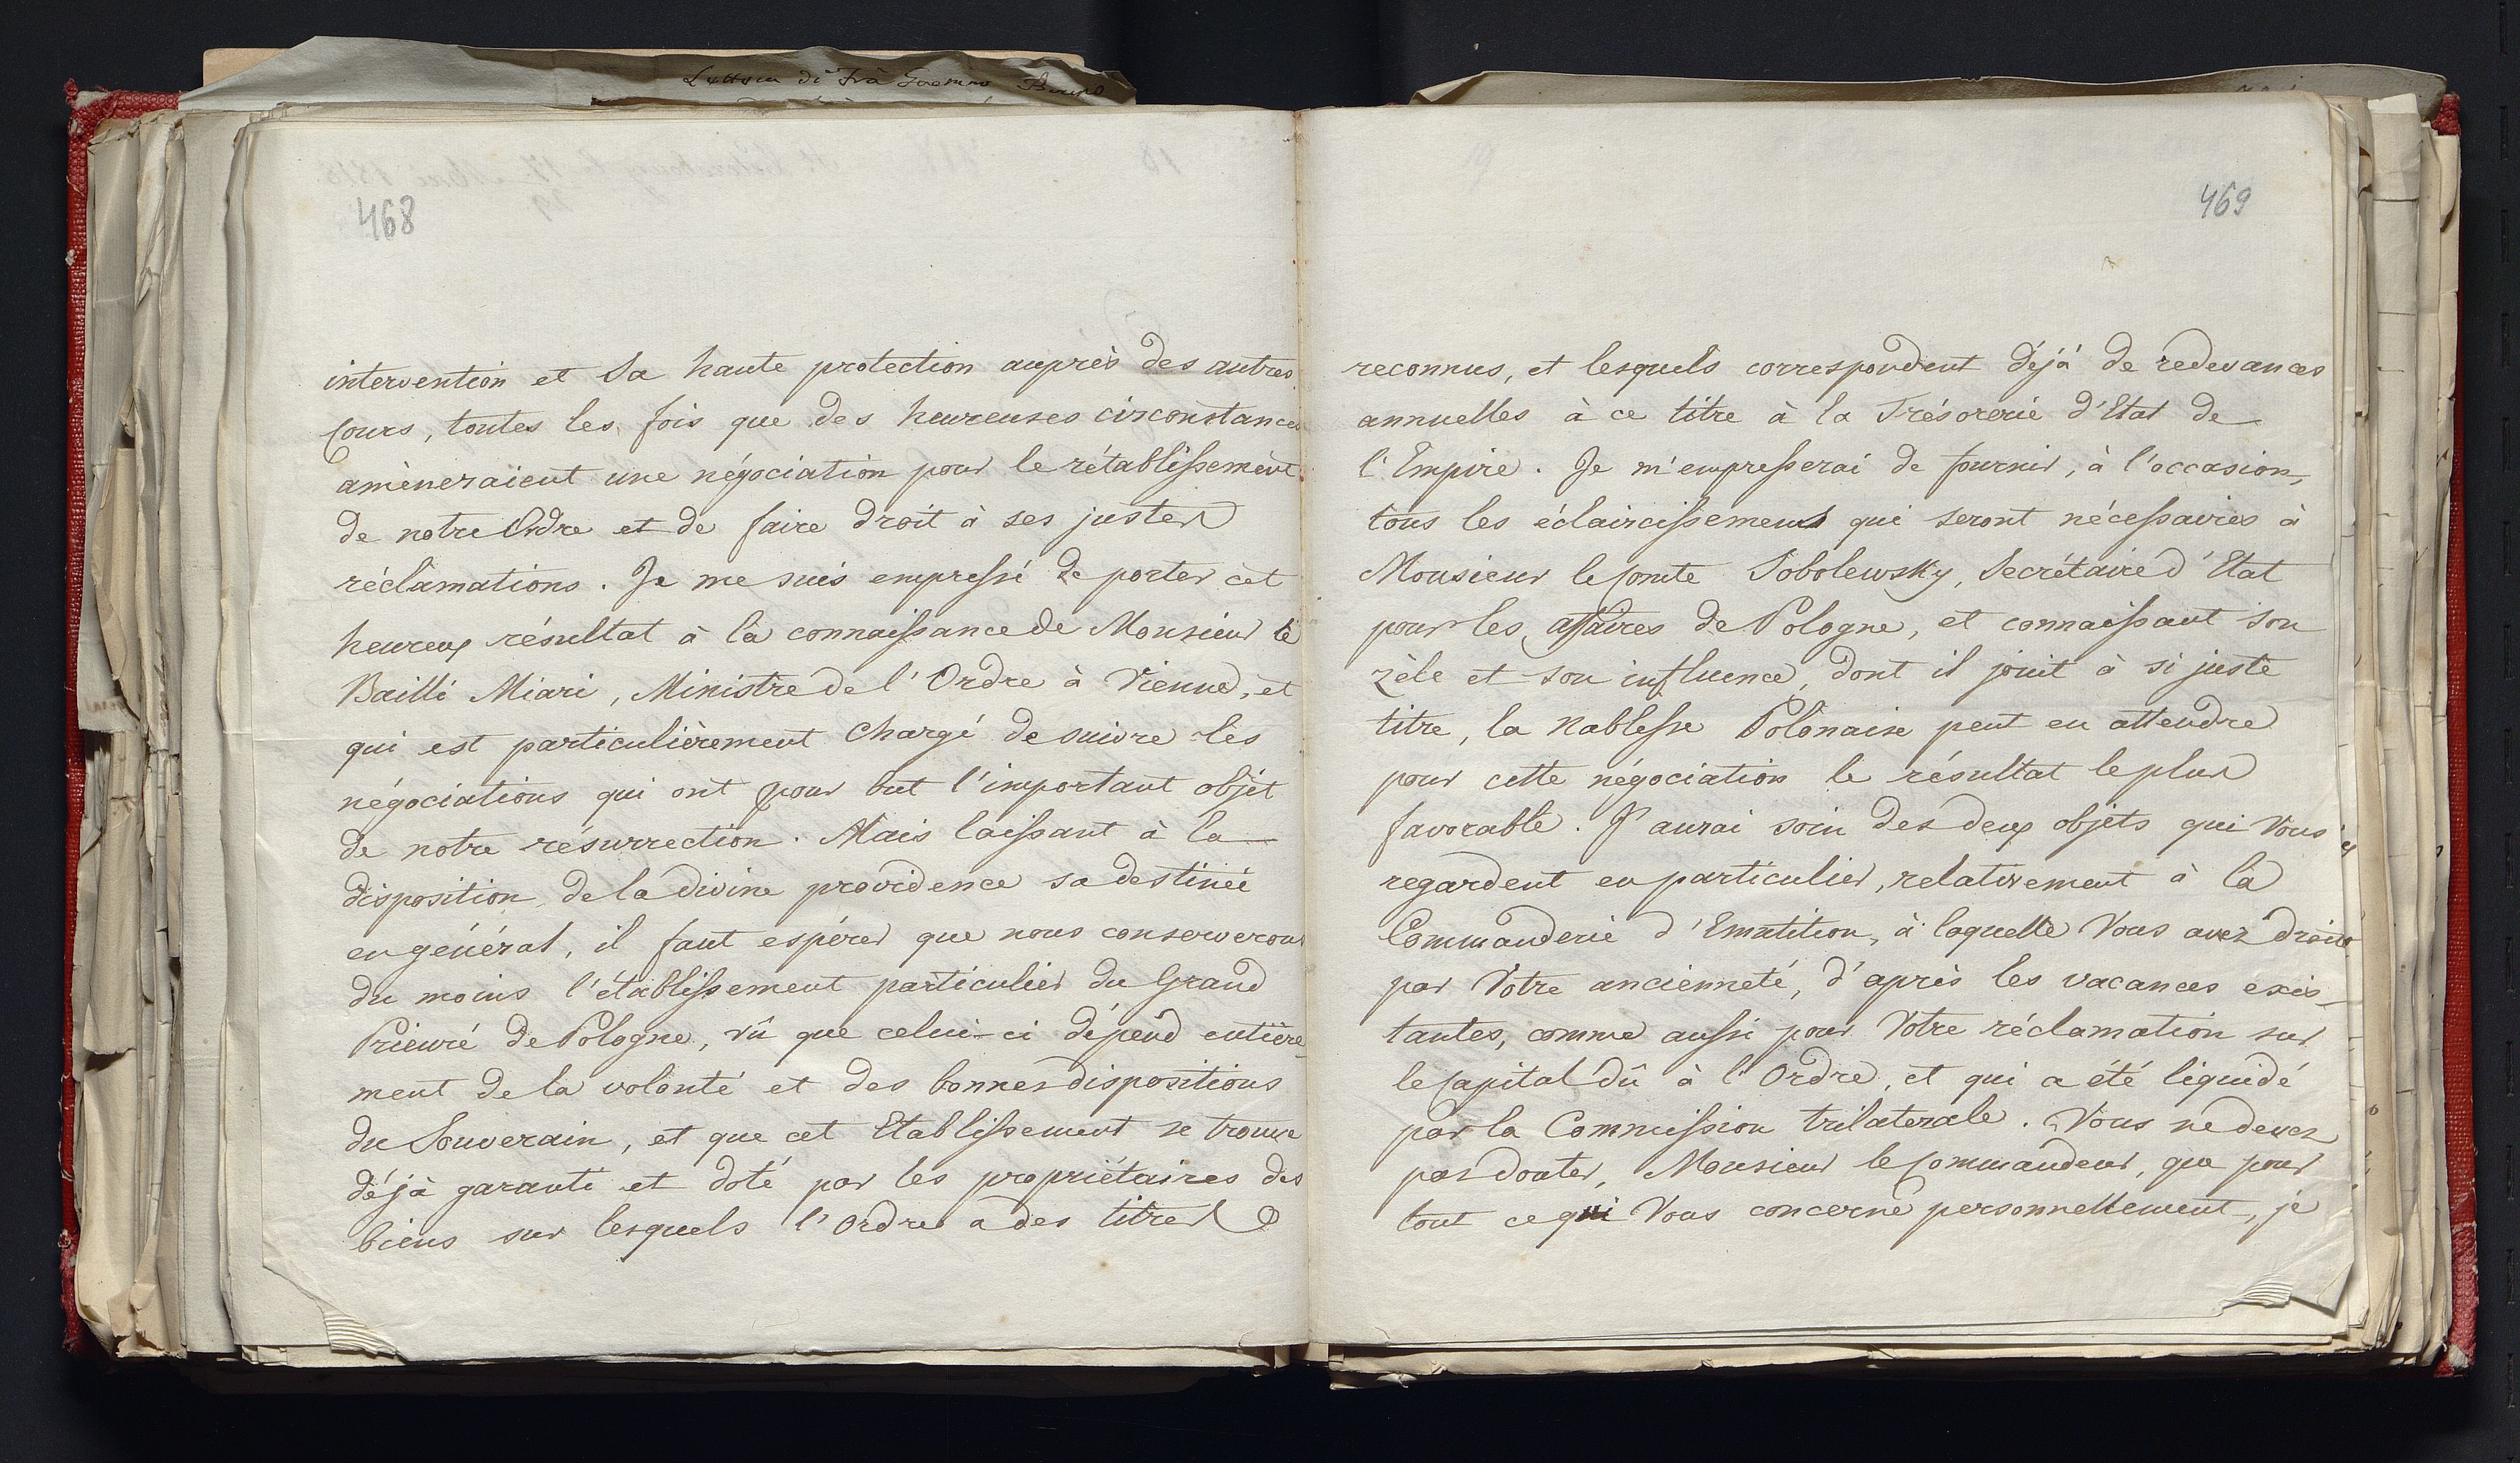 Lettera di Frà
468
intervention et Sa haute protection auprès des autres
Cours, toutes les fois que des heureuses circonstances
amèneraient une négociation pour le rétablissement
de notre Ordre et de faire droit à ses justes
réclamations. Je me suis empressé de porter cet
heureux résultat à la connaissance de Monsieur le
Bailli Miari, Ministre de l'Ordre à Vienne, et
qui est particulièrement chargé de suivre les
négociations qui ont pour but l'important objet
de notre résurrection. Mais laissant à la
disposition de la divine providence sa destinée
en général, il faut espérer que nous conserverons
du moins l'établissement particulier du Grand
Prieuré de Pologne, vû que celui-ci dépend entière-
ment de la volonté et des bonnes dispositions
du Souverain, et que cet Etablissement se trouve
déjà garanti et doté par les propriétaires des
biens sur lesquels l'Ordre a des titres
469
reconnus, et lesquels correspondent déjà de redevances
annuelles à ce titre à la Trésorerie d'Etat de
l'Empire. Je m'empresserai de fournir, à l'occasion,
tous les éclaircissemens qui seront nécessaires à
Monsieur le Comte Sobolewsky, Secrétaire d'Etat
pour les affaires de Pologne, et connaissant son
zèle et son influence, dont il jouit à si juste
titre, la Noblesse Polonaise peut en attendre
pour cette négociation le résultat le plus
favorable. J'aurai soin des deux objets qui Vous
regardent en particulier, relativement à la
Commanderie d'Emutition, à laquelle Vous avez droit
par Votre ancienneté, d'après les vacances exis-
tantes, comme aussi pour Votre réclamation sur
le Capital dû à l'Ordre, et qui a été liquidé
par la Commission trilaterale. Vous ne devez
pas douter, Monsieur le Commandeur, que pour
tout ce qui Vous concerne personnellement, je